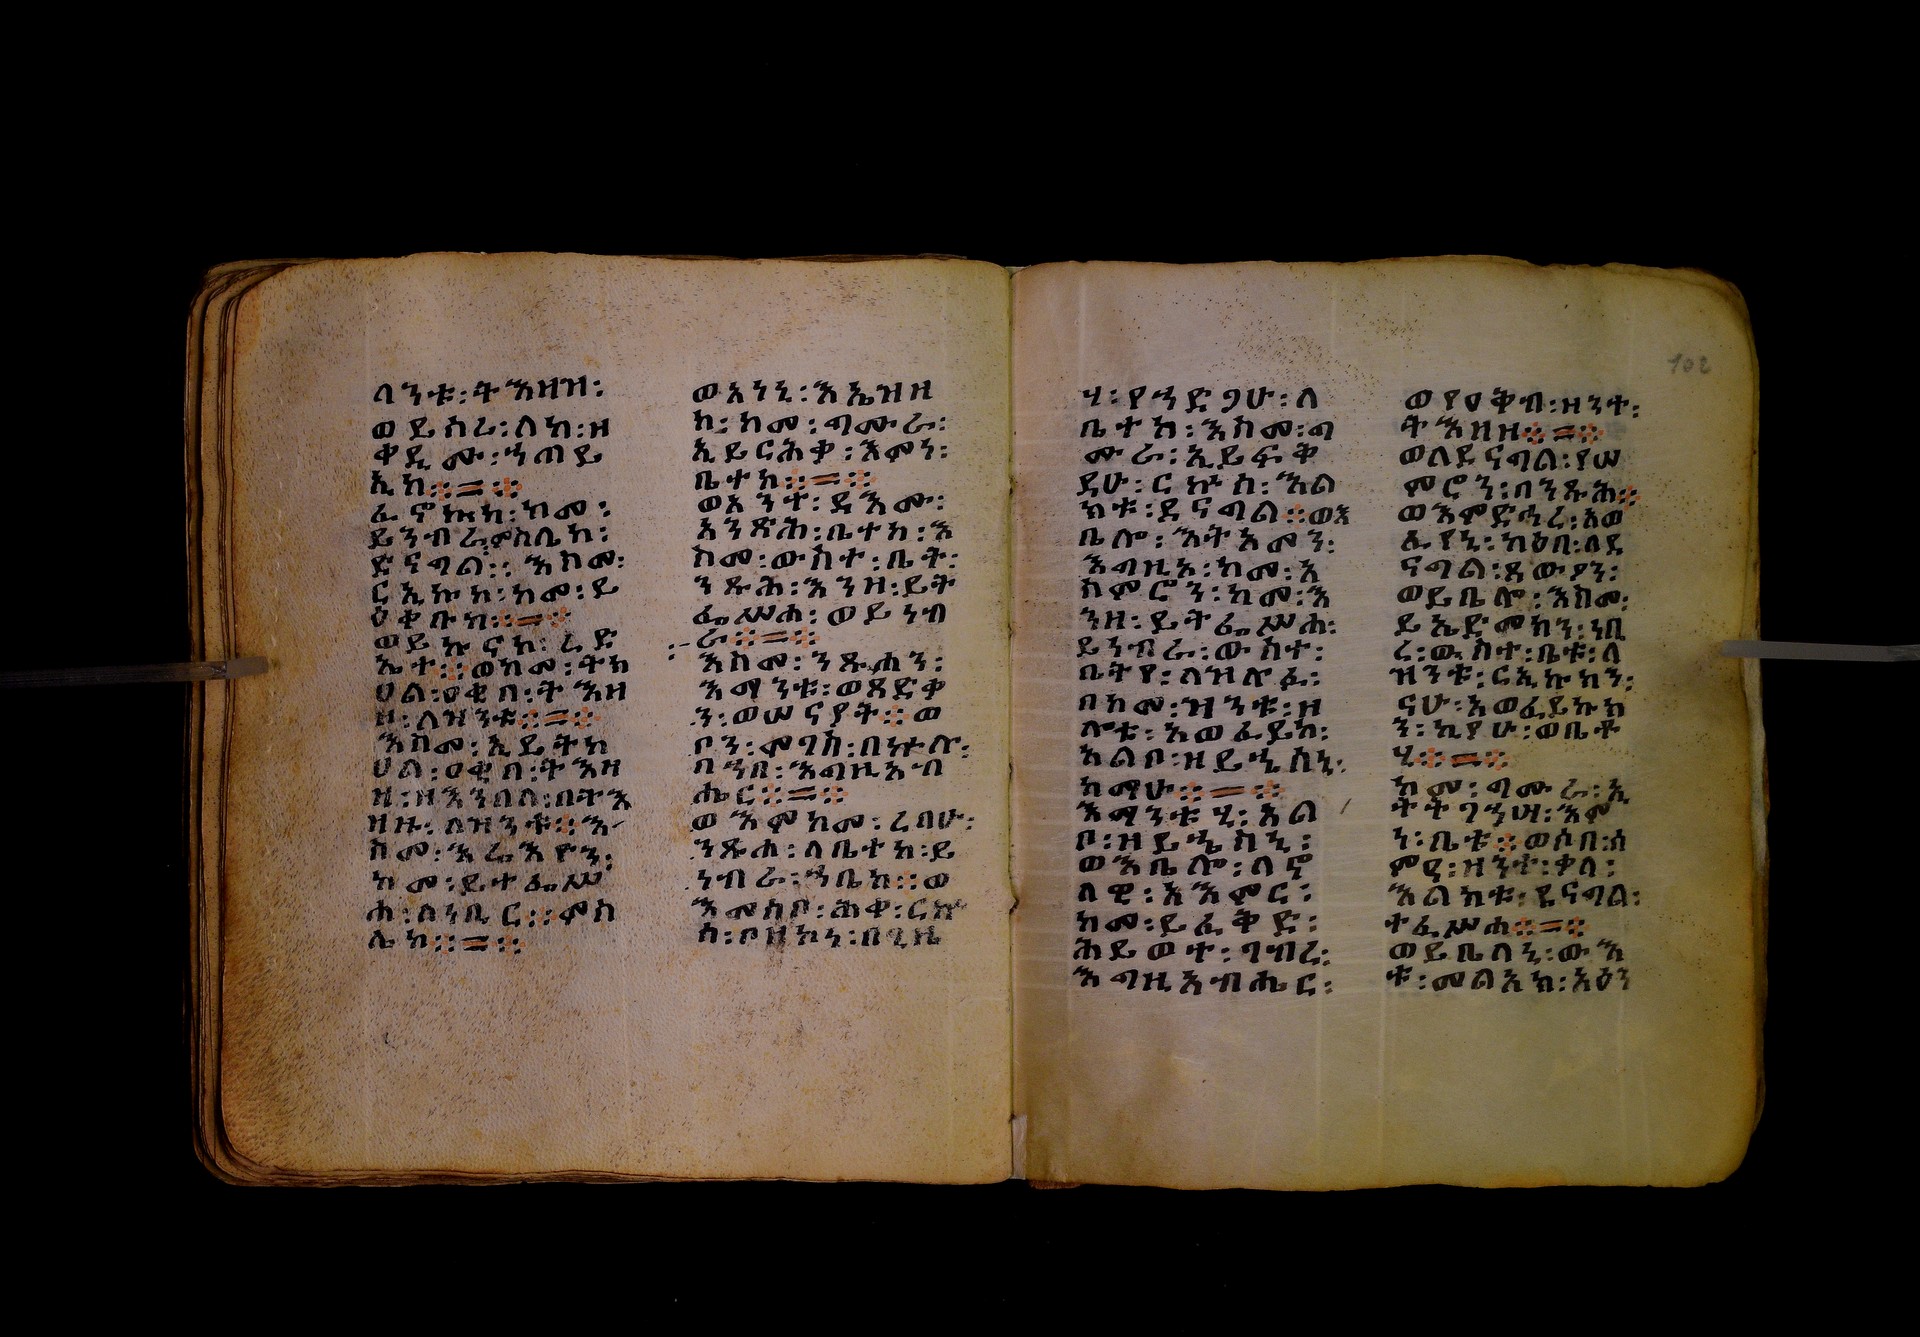 ባንቱ፡ትእዛዝ፡
ወይስሪ፡ለከ፡ዘ
ቀዲሙ፡ኀጠይ
ኢከ።=።
ፈኖኩከ፡ከመ፡
ይንብሪ፡ምስሌከ፡
ድናግል።እከመ፡
ርኢኩከ፡ከመ፡ይ
ዕቀቡከ።=።
ወይኩናከ፡ረድ
ኤተ።ወከመ፡ትክ
ሀል፡ዐቂበ፡ትእዘ
ዘ፡ለዝንቱ።=።
እከመ፡ኢይትክ
ሀል፡ዐቂበ፡ትእዛ
ዝ፡ዘእንበለ፡በትእ
ከመ፡ይተፌሥ
ሐ፡ሰነቢር።ምስ
ሌከ።=።
ወአነኒ፡እኤዝዘ
ከ፡ከመ፡ግሙራ፡
ኢይርሕቃ፡እምነ፡
ቤተከ።=።
ወአንተ፡ደእሙ፡
አንጽሕ፡ቤተከ፡እ
ስመ፡ውስተ፡ቤት፡
ንጹሕ፡እንዘ፡ይት
ፌሥሐ፡ወይነብ
ራ።=።
እስመ፡ንጹሐን፡
እማንቱ፡ወጻድቃ
ን፡ወሠናየት።ወ
ቦን፡መገስ፡በኵሉ፡
በኀበ፡እግዚአብ
ሔር።=።
ወእምከመ፡ረበሁ፡
ንጹሐ፡ለቤተከ፡ይ
ነብራ፡ኀቤከ።ወ
እመሰቦ፡ሕቀ፡ርኩ
ስ፡ቦዘኮነ፡በጊዜ
ሃ፡የኀድጋሁ፡ለ
ቤተከ፡እስመ፡ግ
ሙራ፡ኢይፍቅ
ዳሁ፡ርኩስ፡እል
ክቱ፡ደናግል።ወእ
ቤሎ፡እትአመን፡
እግዚአ፡ከመ፡አ
ስምሮን፡ከመ፡እ
ንዘ፡ይትፌሥሐ፡
ይነብራ፡ውስተ፡
ቤትየ፡ለዝሎፈ፡
በከመ፡ዝንቱ፡ዘ
ሎቱ፡አወፈይከ፡
አልቦ፡ዘይሔስኒ፡
ከማሁ።=።
እማንቱሂ፡አል
ቦ፡ዘይሔስኒ፡
ወእቤሎ፡ለኖ
ለዊ፡አእምር፡
ከመ፡ይፈቅድ፡
ሕይወተ፡ገብረ፡
እግዚአብሔር፡
ወየዐቅብ፡ዘንተ፡
ትእዛዘ።=።
ወለደናግል፡የሠ
ምሮን፡በንጹሕ።
ወእምድኅረ፡አወ
ፈየኒ፡ክዕበ፡ለደ
ናግል፡ጸውዖን፡
ወይቤሎ፡እስመ፡
ይኤድመክን፡ነቢ
ረ፡ውስተ፡ቤቱ፡ለ
ዝንቱ፡ርኢኩክን፡
ናሁ፡አወፈይኩክ
ን፡ኪያሁ፡ወቤቶ
ሂ።=።
ከመ፡ግሙራ፡ኢ
ትትገኀሣ፡እም
ነ፡ቤቱ።ወሶበ፡ሰ
ምዓ፡ዘንተ፡ቃለ፡
እልክቱ፡ደናግል፡
ተፈሥሐ።=።
ወይቤለኒ፡ውእ
ቱ፡መልአክ፡አዕን
102